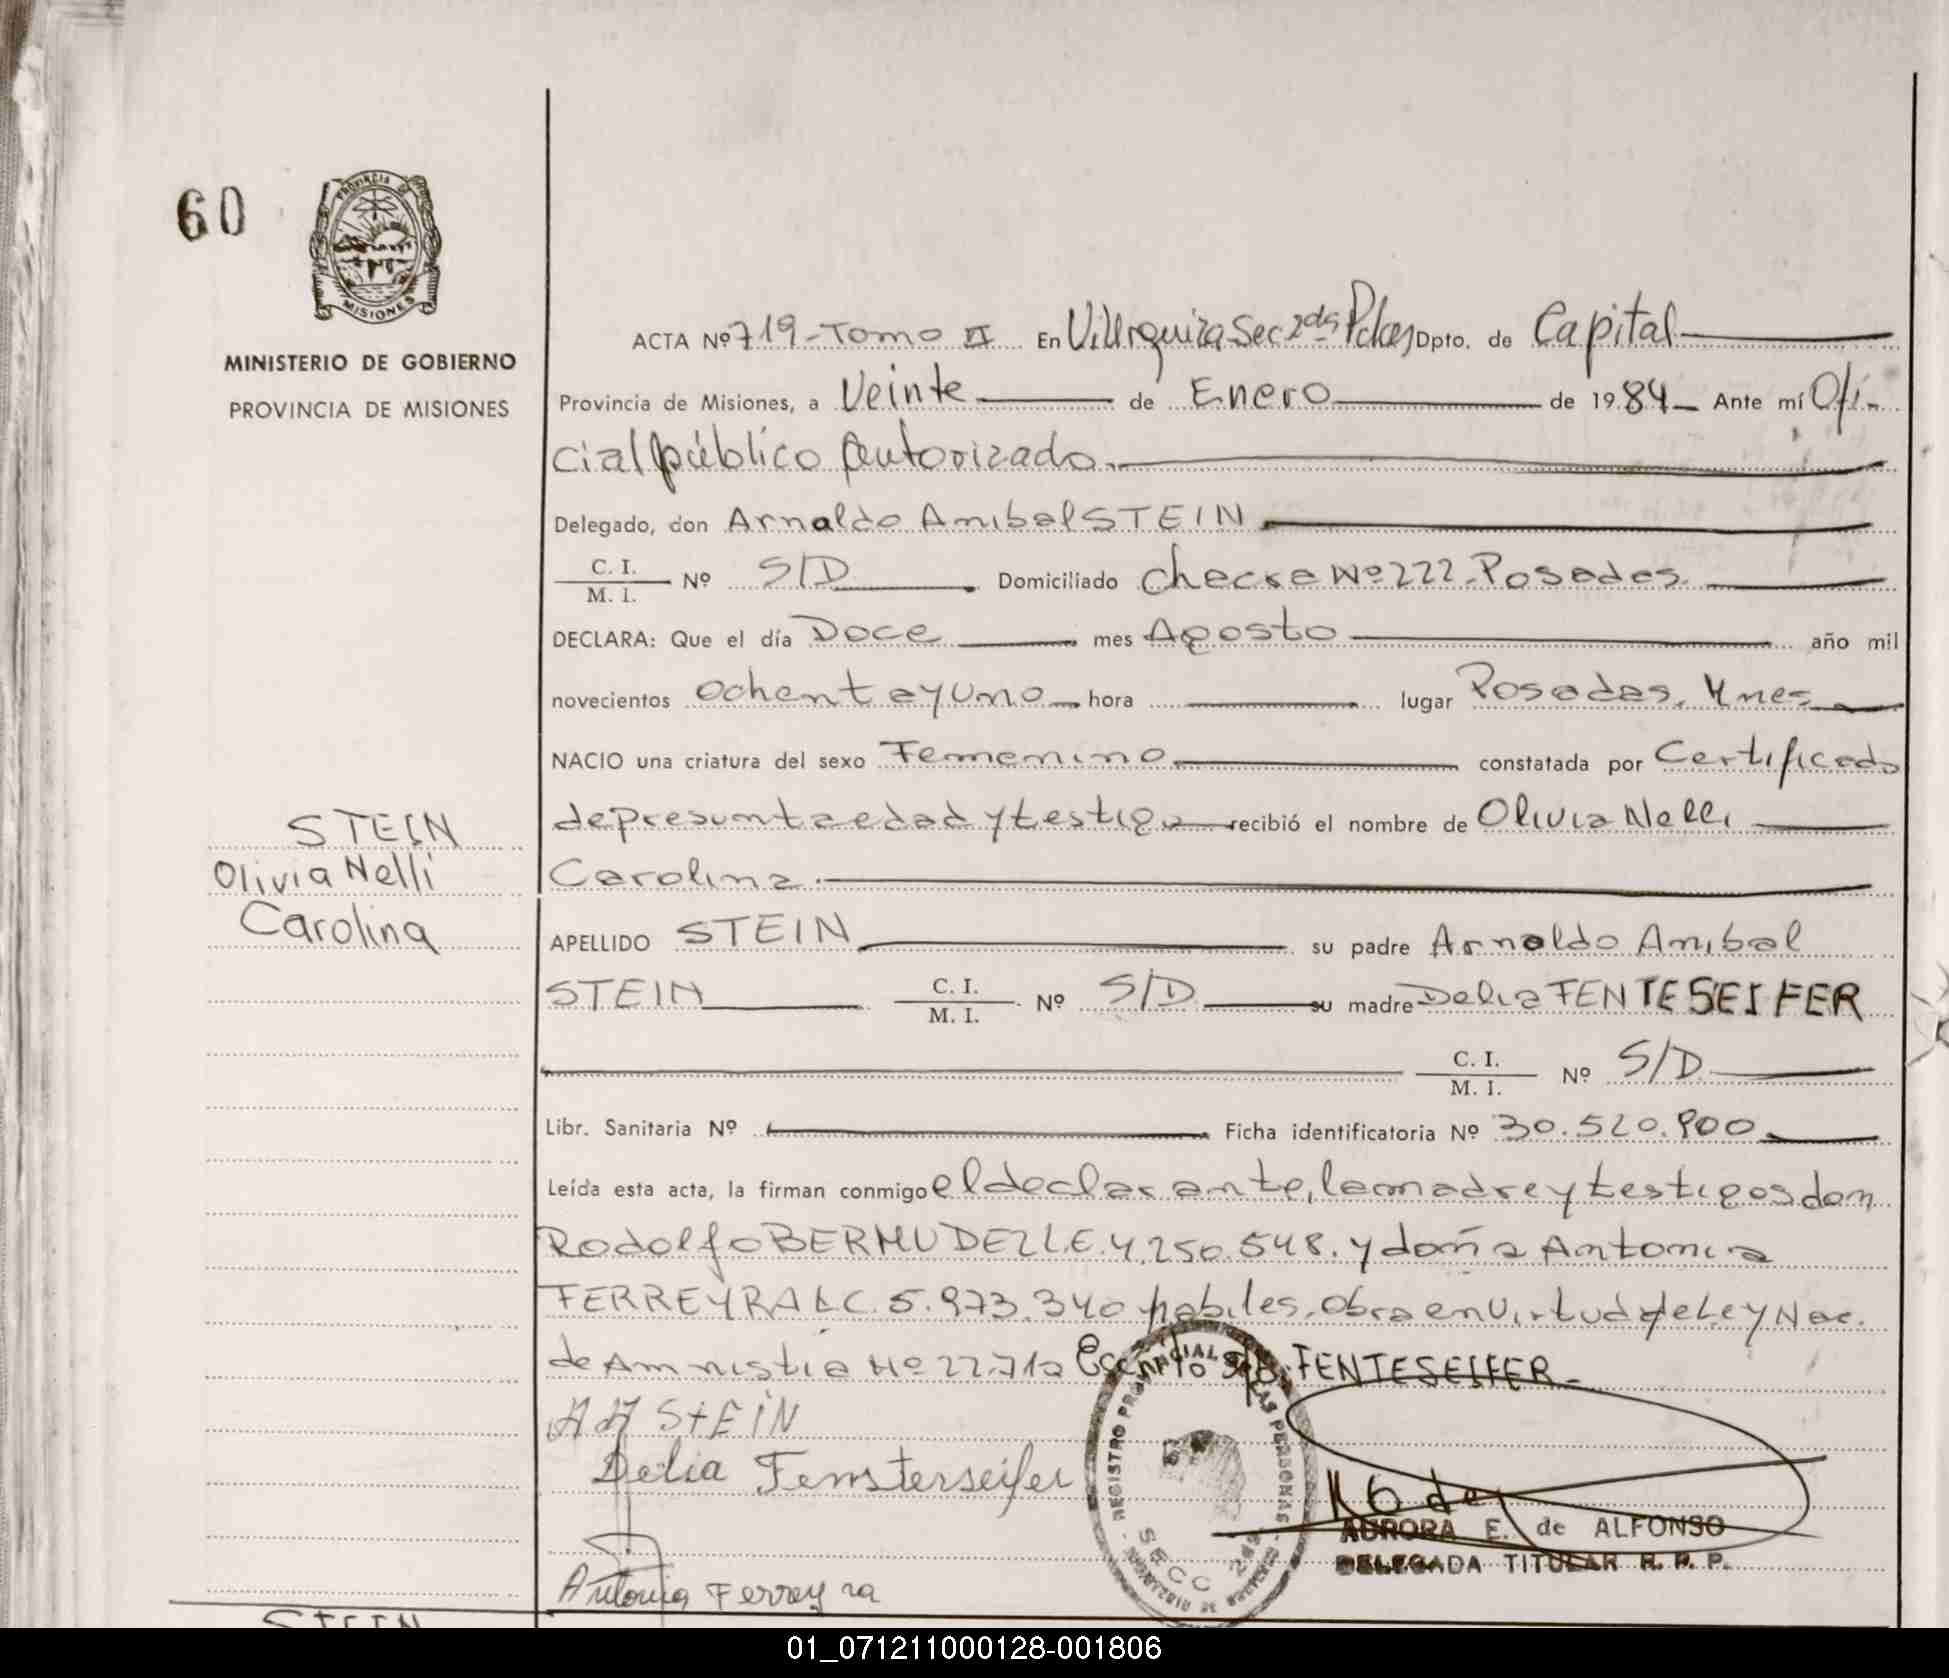 60
PROVINCIA DE
MISIONES
MINISTERIO DE GOBIERNO
PROVINCIA DE MISIONES
ACTA Nº 719-Tomo II En Vill Urquiza Sec 2da Pdas Dpto. de Capital
Provincia de Misiones, a Veinte de Enero de 1984 Ante mí Ofi-
cial público Autorizado.
Delegado, don Arnaldo Anibal STEIN
C. I.
M. I. Nº S/D Domiciliado Chacra Nº 222-Posadas.
DECLARA: Que el día Doce mes Agosto año mil
novecientos ochenta y uno hora lugar Posadas, Mnes
NACIO una criatura del sexo Femenino constatada por Certificado
de presunta edad y testigo recibió el nombre de Olivia Nelli
Carolina.
STEIN
Olivia Nelli
Carolina
APELLIDO STEIN su padre Arnaldo Anibal
STEIN C. I.
M. I. Nº S/D su madre Delia FENTESEIFER
C. I.
M. I. Nº S/D
Libr. Sanitaria Nº Ficha identificatoria Nº 30.520.900
Leída esta acta, la firman conmigo el declarante, la madre y testigos don
Rodolfo BERMUDEZ L.E. 4,250.548. y doña Antonia
FERREYRA L C. 5.973.340 habiles. Obra en virtud de Ley Nac.
de Amnistia Nº 22.712 Escrito S/B. FENTESEIFER
A A STEIN
Delia Fensterseifer
Antonia Ferreyra
REGISTRO PROVINCIAL DE LAS PERSONAS
SECC 2da
AURORA E. de ALFONSO
DELEGADA TITULAR R. P. P.
STEIN
01_071211000128-001806